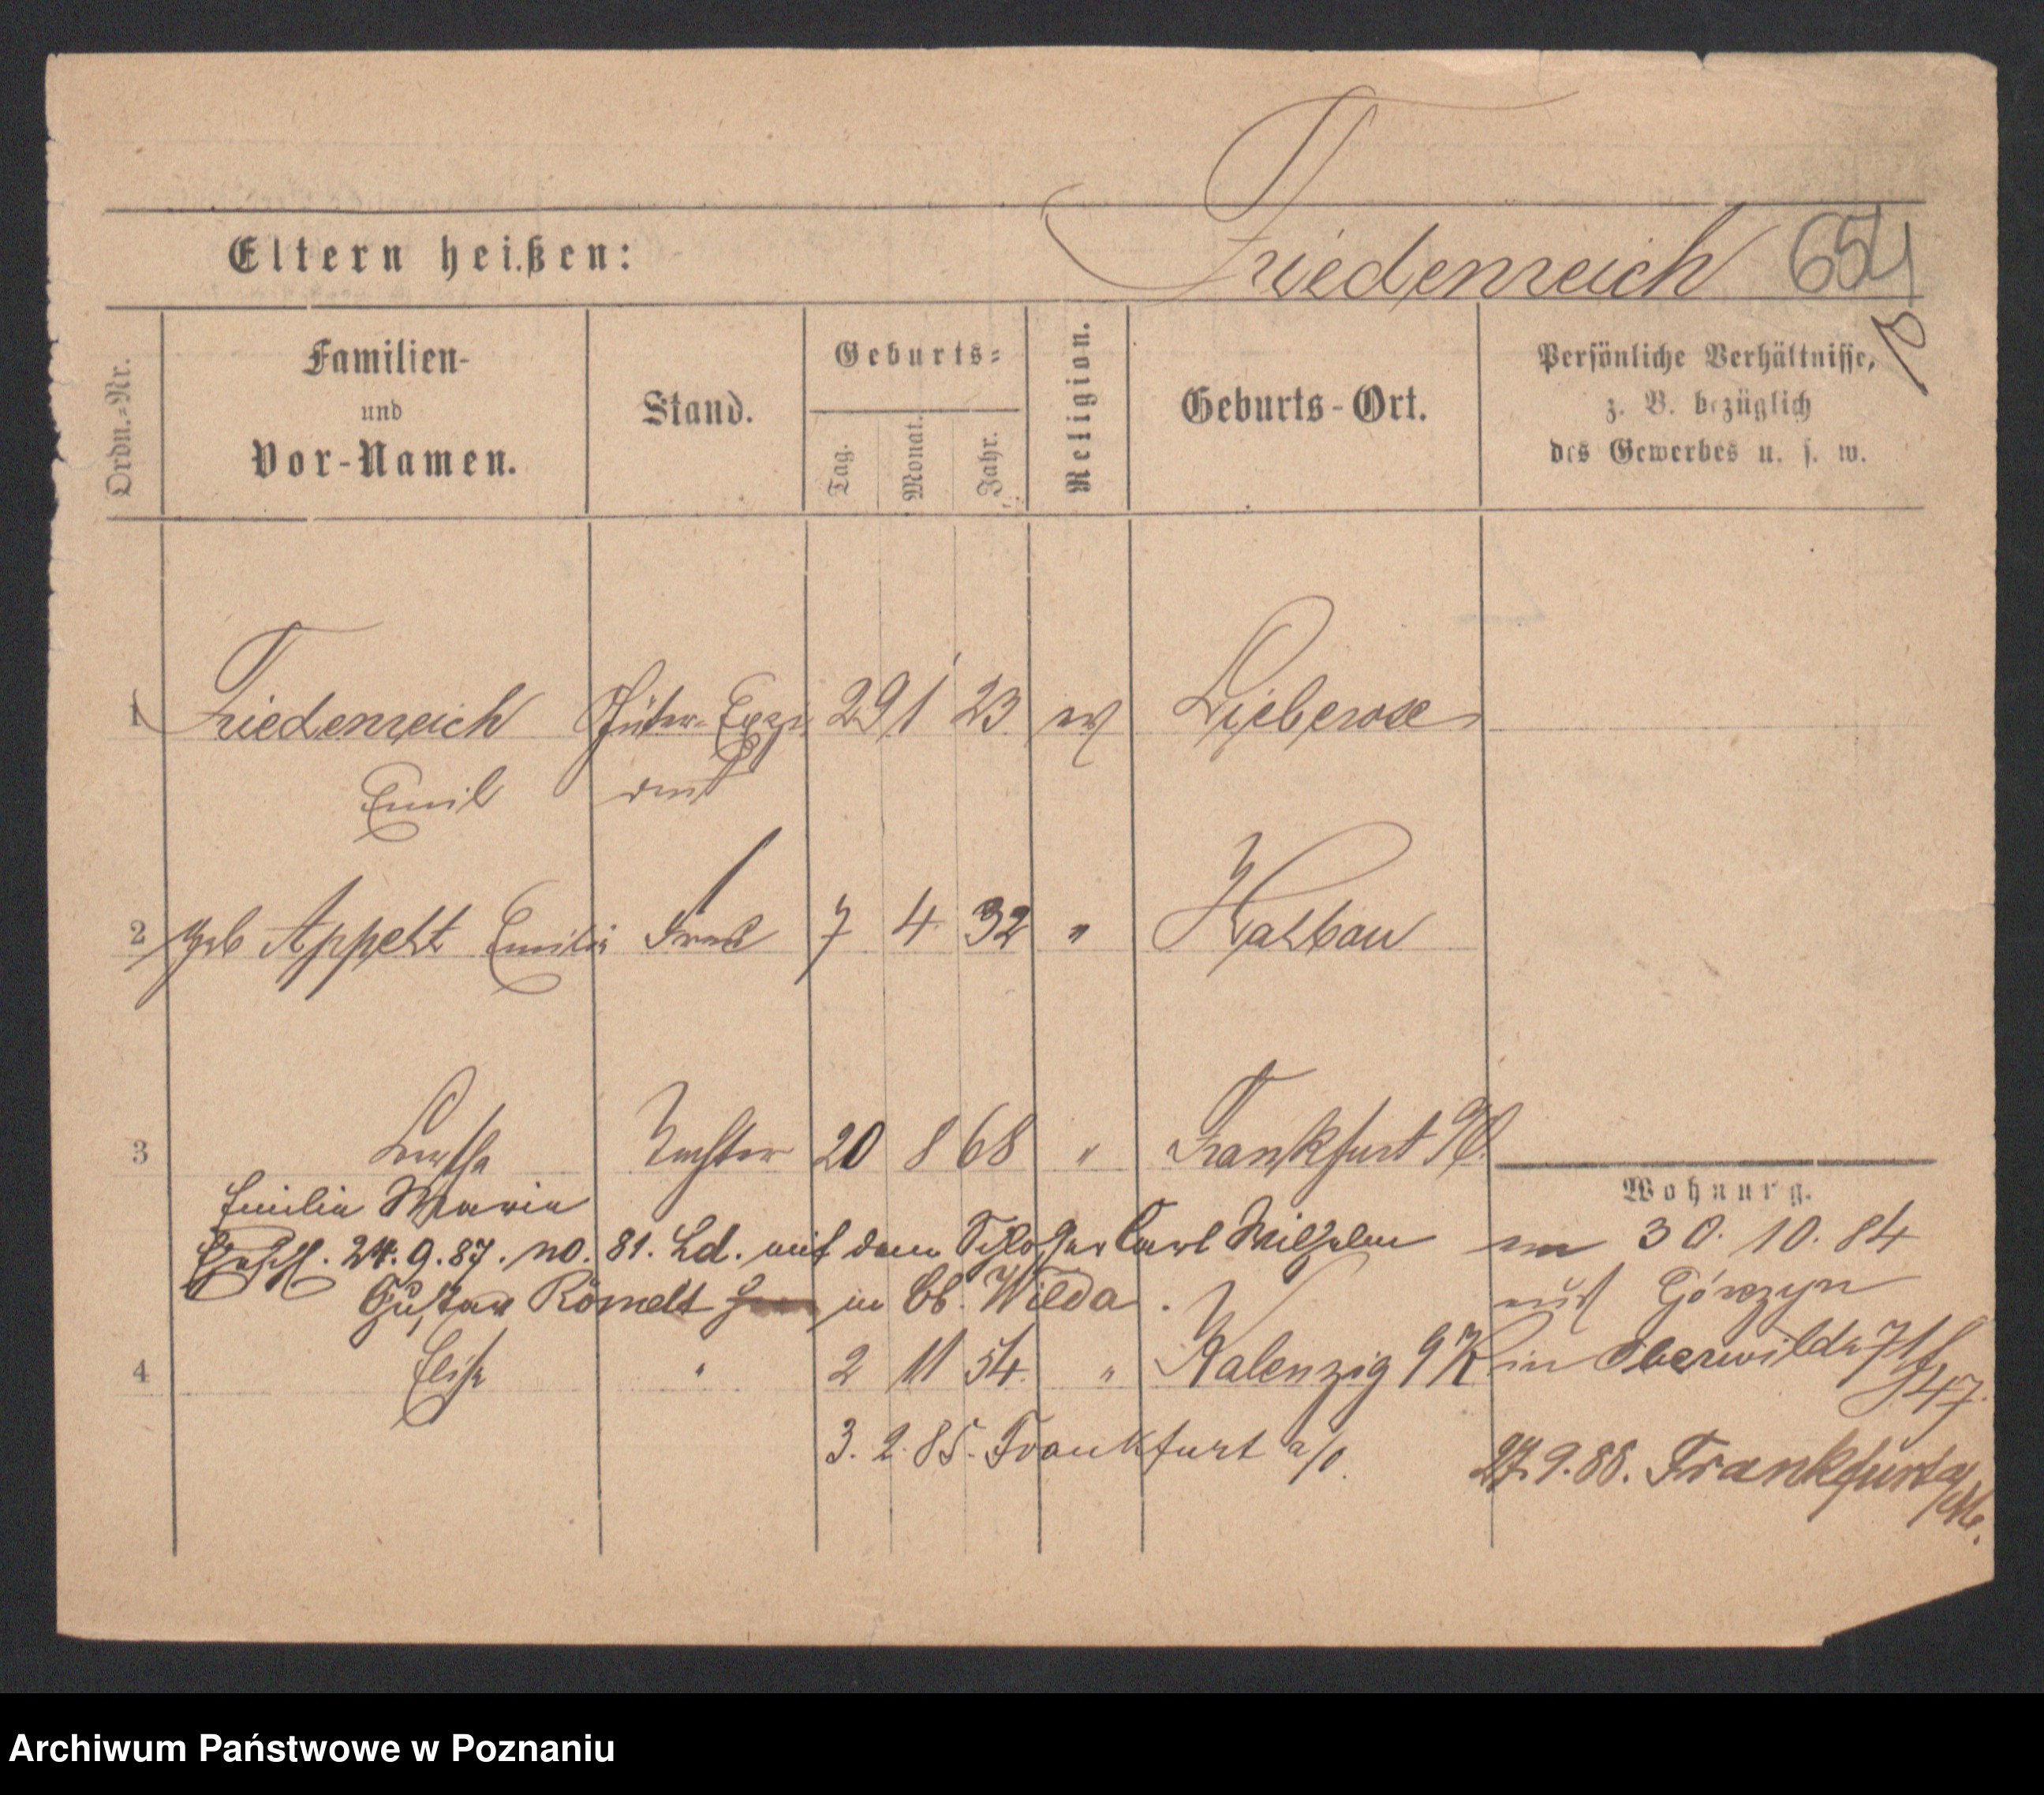 Eltern heißen:
Friedenreich 654
Ordn.-Nr.
Familien-
und
Vor-Namen.
Stand.
Geburts-
Tag.
Monat.
Jahr.
Religion.
Geburts-Ort.
Persönliche Verhältnisse,
z. B. bezüglich
des Gewerbes u. s. w.
1 Friedenreich Güter-Expe 29 1 23 ev Lieberose
Emil dient
2 geb Appelt Emilie Frau 7 4 32 " Halbau
3 Tochter 20 8 68 " Frankfurt
Emilie Marie
Wohnung.
24.9.87. No. 81. Ld. mit dem Schlosser Carl Wilhelm
Gustav Römelt in Ob. Wilda.
30.10.84
aus Górczyn
4 Elise " 2 11 54. " Kalenzig in Oberwilda
47.
3.2.85. Frankfurt a/O.
27.9.88. Frankfurt a/M.
Archiwum Państwowe w Poznaniu